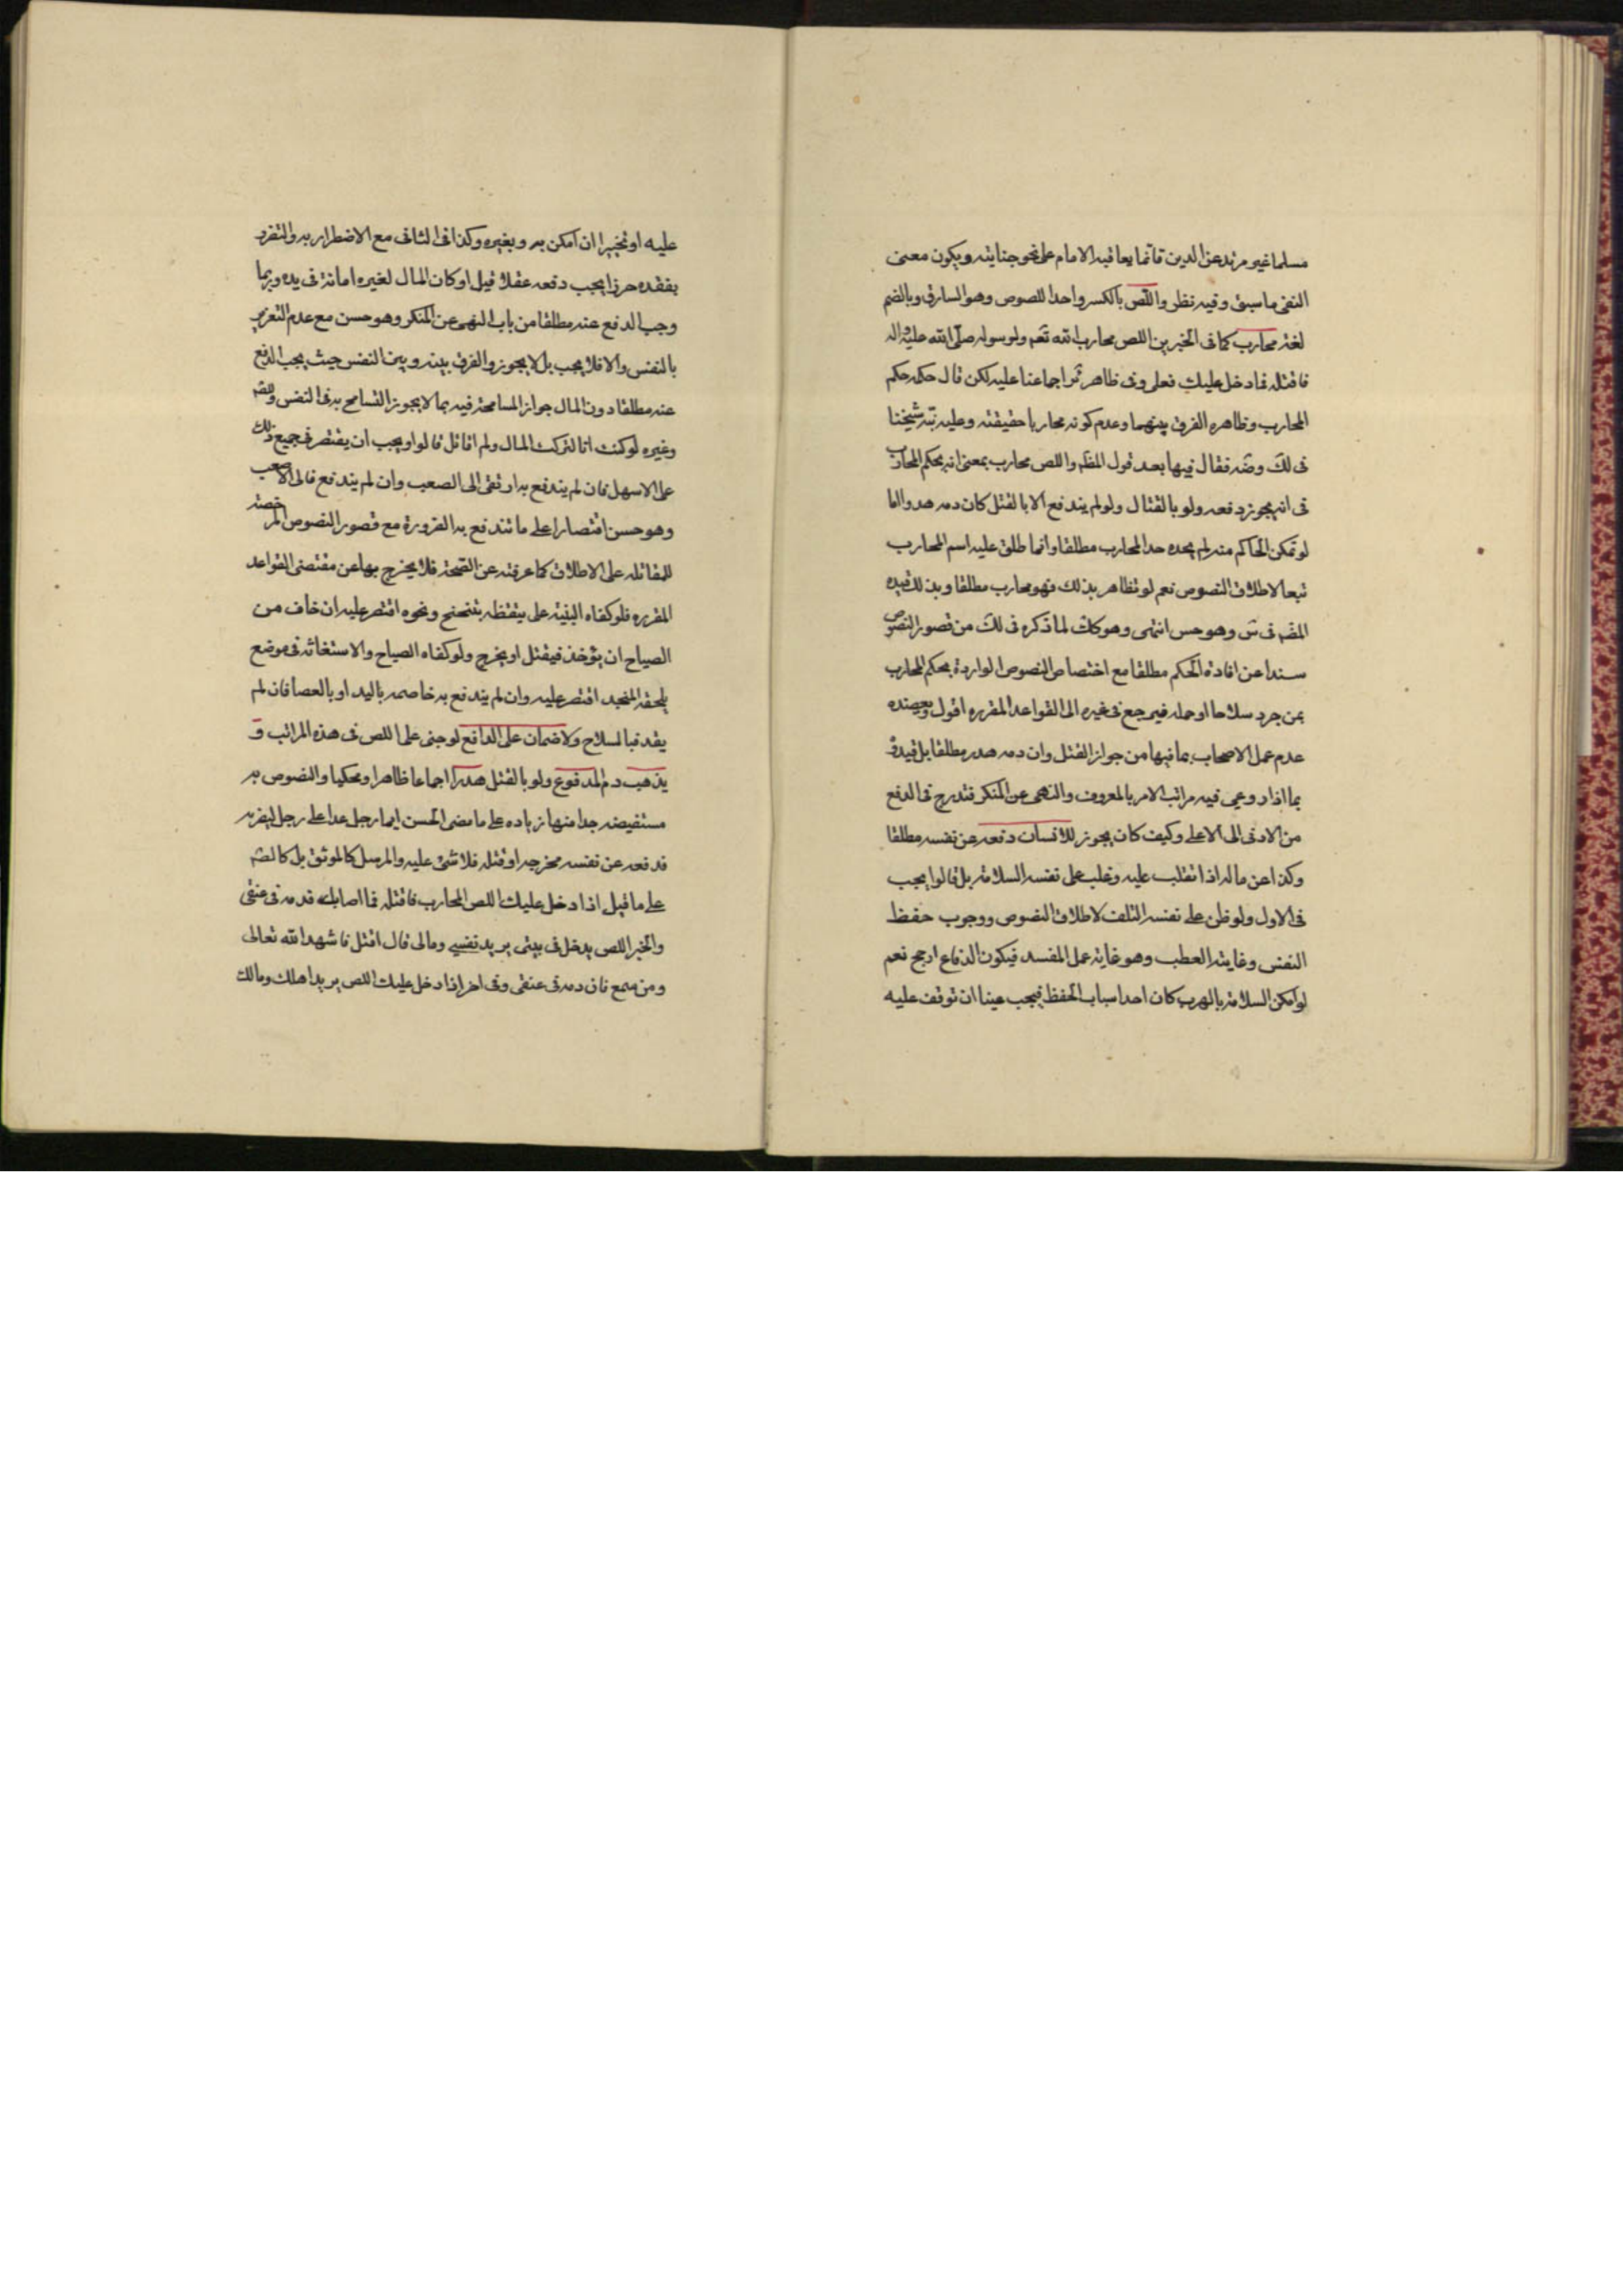 مسلما غير مرتد عن الدين فانما يعاقبه الامام على نحو جنايته ويكون معنى
النفى ما سبق وفيه نظر واللص بالكسر واحد اللصوص وهو السارق وبالضم
لغة محارب كما فى الخبرين اللص محارب لله تعم ولرسوله صلى الله عليه واله
فاقتله فما دخل عليك فعلى وفى ظاهر ئر اجماعنا عليه لكن قال حكمه حكم
المحارب وظاهره الفرق بينهما وعدم كونه محاربا حقيقة وعليه نبّه شيخنا
فى لك وضه فقال فيها بعد قول المظم واللص محارب بمعنى انه بحكم المحارب
فى انه يجوز دفعه ولو بالقتال ولو لم يندفع الا بالقتل كان دمه هدرا اما
لو تمكن الحاكم منه لم يحده حد المحارب مطلقا وانما اطلق عليه اسم المحارب
تبعا لاطلاق النصوص نعم لو تظاهر بذلك فهو محارب مطلقا وبذلك قيده
المضم فى س وهو حسن انتهى وهو كك لما ذكره فى لك من قصور النصوص
سندا عن افادة الحكم مطلقا مع اختصاص النصوص الواردة بحكم المحارب
بمن جرد سلاحا او حمله فيرجع فى غيره الى القواعد المقرره اقول ويعضده
عدم عمل الاصحاب بما فيها من جواز القتل وان دمه هدر مطلقا بل قيدوه
بما اذا روعى فيه مراتب الامر بالمعروف والنهى عن المنكر فتدرج فى الدفع
من الادنى الى الاعلى وكيف كان يجوز للانسان دفعه عن نفسه مطلقا
وكذا عن ماله اذا تغلب عليه وغلب على نفسه السلامة بل قالوا يجب
فى الاول ولو ظن على نفسه التلف لاطلاق النصوص ووجوب حفظ
النفس وغايته العطب وهو غاية عمل المفسد فيكون الدفاع ارجح نعم
لو امكن السلامة بالهرب كان احد اسباب الحفظ فيجب عينا ان توقف عليه
عليه او تخييرا ان امكن به وبغيره وكذا فى الثانى مع الاضطرار به والتضرر
بفقده ضررا يجب دفعه عقلا قيل او كان المال لغيره امانة فى يده وربما
وجب الدفع عنه مطلقا من باب النهى عن المنكر وهو حسن مع عدم التغرير
بالنفس والا فلا يجب بل لا يجوز والفرق بينه وبين النفس حيث يجب الدفع
عنه مطلقا دون المال جواز المسامحة فيه بما لا يجوز التسامح به فى النفس
وغيره لو كنت انا لتركت المال ولم اقاتل قالوا ويجب ان يقتصر فى جميع ذلك
على الاسهل فان لم يندفع به ارتقى الى الصعب وان لم يندفع فالى الاصعب
وهو حسن اقتصارا على ما تندفع به الضرورة مع قصور النصوص المرخصة
للمقاتله على الاطلاق كما عرفته عن الصحة فلا يخرج بها عن مقتضى القواعد
المقرره فلو كفاه التنبيه على تيقظه بتنحنح ونحوه اقتصر عليه ان خاف من
الصياح ان يؤخذ فيقتل او يجرح ولو كفاه الصياح والاستغاثة فى موضع
يلحقه المنجد اقتصر عليه وان لم يندفع به خاصمه باليد او بالعصا فان لم
يفد فبالسلاح ولا ضمان على الدافع لو جنى على اللص فى هذه المراتب و
يذهب دم المدفوع ولو بالقتل هدرا اجماعا ظاهرا ومحكيا والنصوص به
مستفيضه جدا منها زياده على ما مضى الحسن ايما رجل عدا على رجل ليضربه
فدفعه عن نفسه فجرحه او قتله فلا شئ عليه والمرسل كالموثق بل كالصم
على ما قيل اذا دخل عليك اللص المحارب فاقتله فما اصابك فدمه فى عنقى
والخبر اللص يدخل فى بيتى يريد نفسى ومالى قال اقتل فاشهد الله تعالى
ومن سمع فان دمه فى عنقى وفى اخر اذا دخل عليك اللص يريد اهلك ومالك